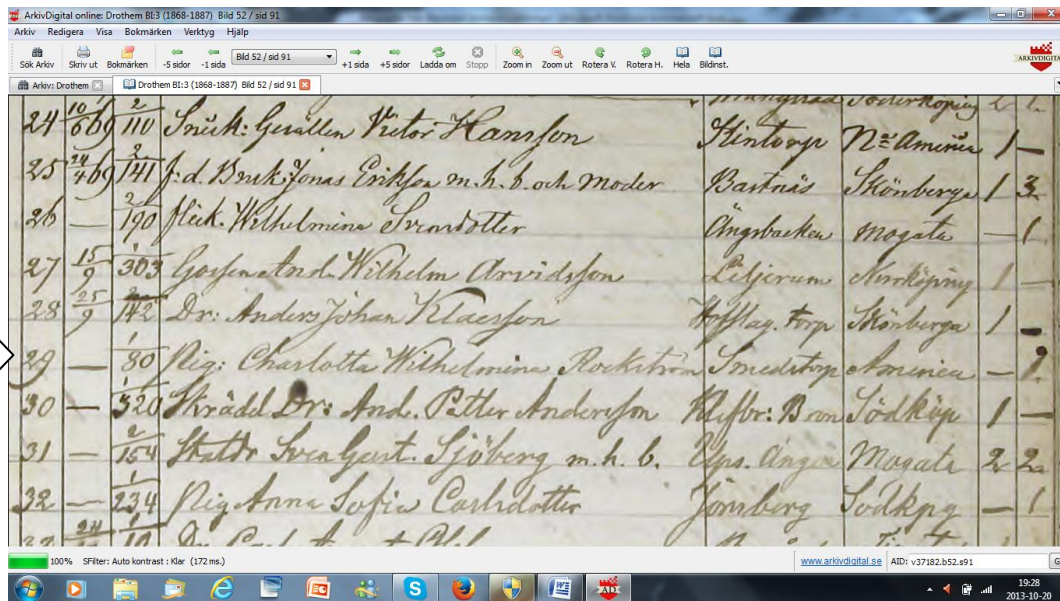 ArkivDigital online: Drothem BI:3 (1868-1887) Bild 52 / sid 91
Arkiv Redigera Visa Bokmärken Verktyg Hjälp
Sök Arkiv Skriv ut Bokmärken -5 sidor -1 sida Bild 52 / sid 91 +1 sida +5 sidor Ladda om Stopp Zoom in Zoom ut Rotera V. Rotera H. Hela Bildinst. ARKIVDIGITAL
Arkiv: Drothem Drothem BI:3 (1868-1887) Bild 52 / sid 91
Söderköping 2 1.
24 10/6 69 2/110 Snick: Gesällen Victor Hansson Slintorp N.a America 1 —
25 24/4 69 2/141 f.d. Bruk. Jonas Eriksson m.h.b. och Moder Bastnäs Skönberga 1 3
26 — 2/190 Flick. Wilhelmina Svensdotter Ängsbacken Mogata — 1.
27 15/9 303 Gossen And. Wilhelm Arvidsson Norrköping 1 —
28 25/9 2/142 Dr: Anders Johan Klaesson Skönberga 1 —
29 — 1/80 Pig: Charlotta Wilhelmina Rockström Smedstorp America — 1.
30 — 1/320 Skrädd Dr: And. Petter Andersson Södköp 1 —
31 — 2/154 Statdr Sven Gust. Sjöberg m.h.b. Mogata 2 2
32 — 1/234 Pig Anna Sofia Carlsdotter Jonsberg Södkpg — 1
100% SFilter: Auto kontrast : Klar (172 ms.) www.arkivdigital.se AID: v37182.b52.s91 G
19:28
2013-10-20